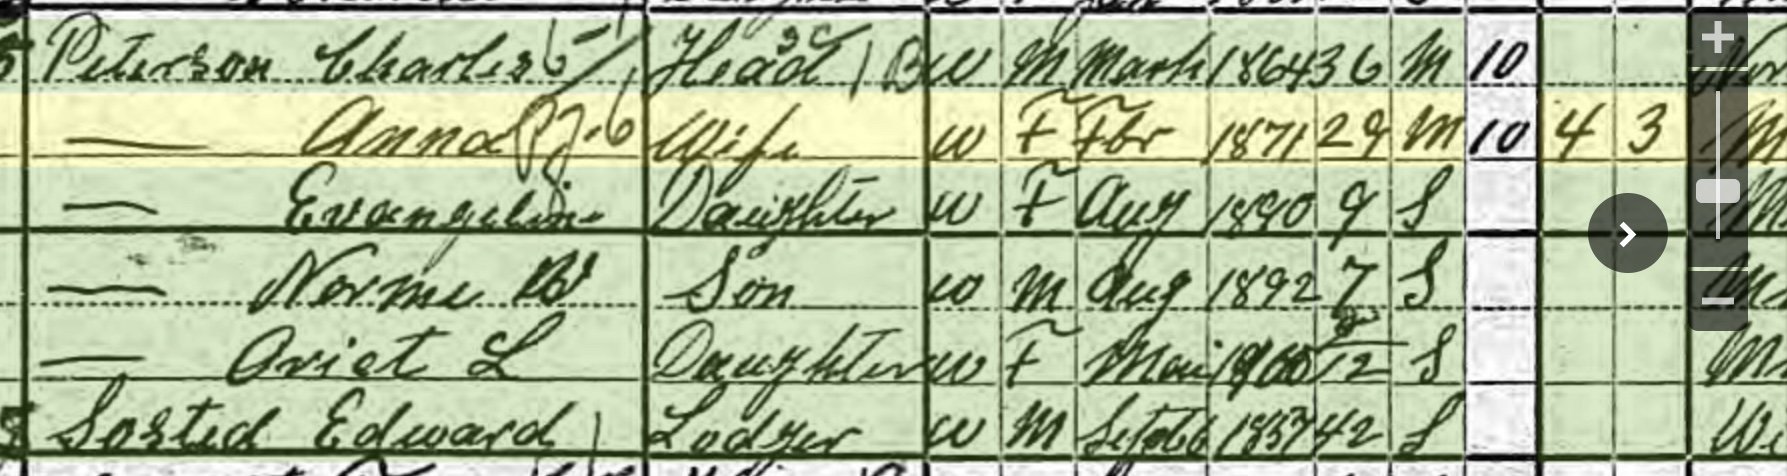 Peterson Charles Head W M March 1864 36 M 10
— Anna Wife W F Fbr 1871 29 M 10 4 3
— Evangeline Daughter W F Aug 1890 9 S
— Norme B Son W M Aug 1892 7 S
— Oriet L Daughter W F 1900 /12 S
Edward Lodger W M 1857 42 S